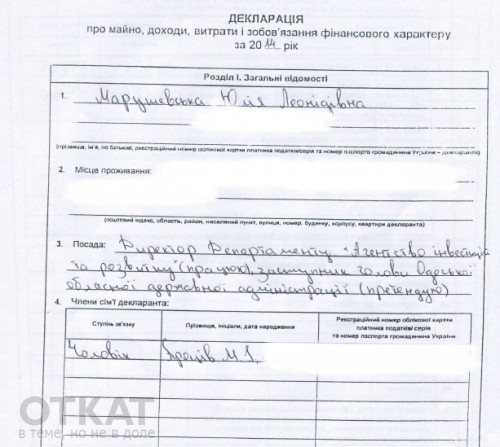 ДЕКЛАРАЦІЯ
про майно, доходи, витрати і зобов'язання фінансового характеру
за 2014 рік
Розділ I. Загальні відомості
1. Марушевська Юлія Леонідівна
(прізвище, ім'я, по батькові, реєстраційний номер облікової картки платника податків/серія та номер паспорта громадянина України – декларанта)
2. Місце проживання:
(поштовий індекс, область, район, населений пункт, вулиця, номер: будинку, корпусу, квартири декларанта)
3. Посада: Директор Департаменту "Агентство інвестицій
та розвитку" (працюю), заступник голови Одеської
обласної державної адміністрації (претендую)
4. Члени сім'ї декларанта:
Ступінь зв'язку
Прізвище, ініціали, дата народження
Реєстраційний номер облікової картки
платника податків/серія
та номер паспорта громадянина України
Чоловік
ОТКАТ
в теме, но не в доле